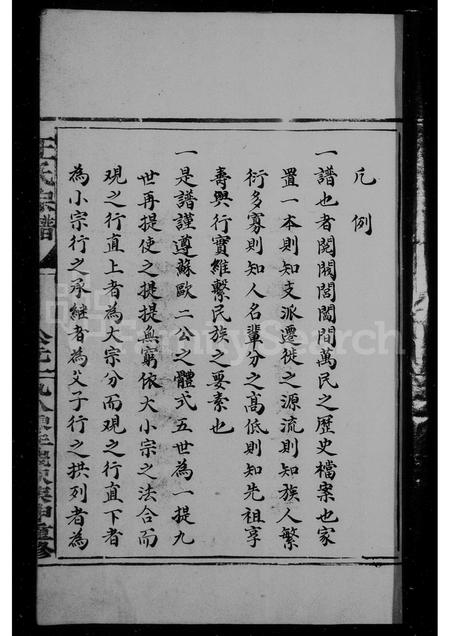 凡例
一譜也者閱閥閭閻間萬民之歷史檔案也家
置一本則知支派遷徙之源流則知族人繁
衍多寡則知人名輩分之高低則知先祖享
壽興行實維繫民族之要素也
一是譜謹遵蘇歐二公之體式五世為一提九
世再提使之提提無窮依大小宗之法合而
觀之行直上者為大宗分而觀之行直下者
為小宗行之承繼者為父子行之拱列者為
氏宗譜
FamilySearch